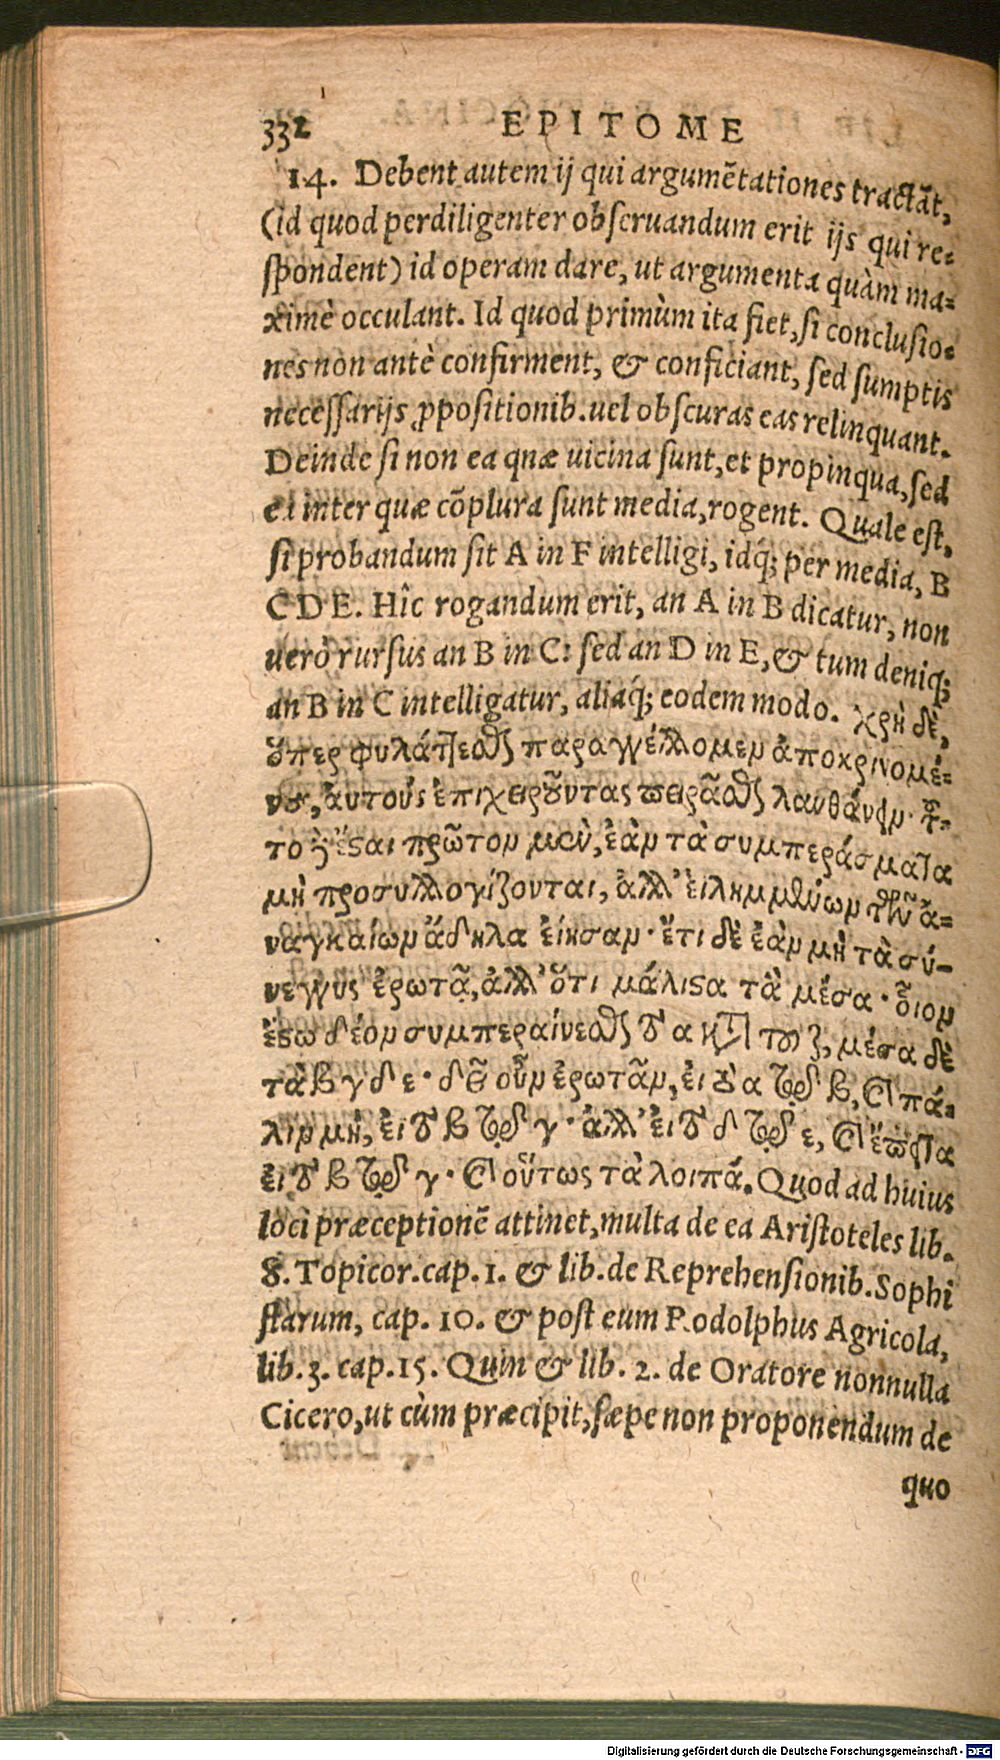 332 EPITOME
14. Debent autem ij qui argumẽtationes tractãt,
(id quod perdiligenter obseruandum erit ijs qui re=
spondent) id operam dare, ut argumenta quàm ma=
ximè occulant. Id quod primùm ita fiet, si conclusio=
nes non antè confirment, & conficiant, sed sumptis
necessarijs ꝓpositionib. uel obscuras eas relinquant.
Deinde si non ea qnæ uicina sunt, et propinqua, sed
ea inter quæ cõplura sunt media, rogent. Quale est,
si probandum sit A in F intelligi, idq́; per media, B
C D E. Hîc rogandum erit, an A in B dicatur, non
uerò rursus an B in C: sed an D in E, & tum deniq;
an B in C intelligatur, aliaq́; eodem modo. χρὴ δὲ,
ὅπερ φυλάττεσθαι παραγγέλλομεν ἀποκρινομέ=
νους, ἀυτοὺς ἐπιχειροῦντας πειρᾶσθαι λανθάνειν. τοῦ=
το δ᾽ ἔσαι πρῶτον μὲν, ἐὰν τὰ συμπεράσματα
μὴ προσυλλογίζονται, ἀλλ᾽ ἐιλημμένων τῶν ἀ=
ναγκαίων ἄδηλα ἐίησαν· ἔτι δὲ ἐὰν μὴ τὰ σύ=
νεγγυς ἐρωτᾷ, ἀλλ᾽ ὅτι μάλιςα τὰ μέσα· οἷον
ἔςω δέον συμπεραίνεσθαι τὸ α κατὰ τοῦ ζ, μέσα δὲ
τὰ β γ δ ε· δεῖ οὖν ἐρωτᾶν, ἐι τὸ α τῷ β, καὶ πά=
λιν μὴ, ἐι τὸ β τῷ γ· ἀλλ᾽ ἐι τὸ δ τῷ ε, καὶ ἔπειτα
ἐι τὸ β τῷ γ· καὶ οὕτως τὰ λοιπά. Quod ad huius
loci præceptionẽ attinet, multa de ea Aristoteles lib.
8. Topicor. cap. 1. & lib. de Reprehensionib. Sophi
starum, cap. 10. & post eum Rodolphus Agricola,
lib. 3. cap. 15. Quin & lib. 2. de Oratore nonnulla
Cicero, ut cùm præcipit, sæpe non proponendum de
quo
Digitalisierung gefördert durch die Deutsche Forschungsgemeinschaft - DFG